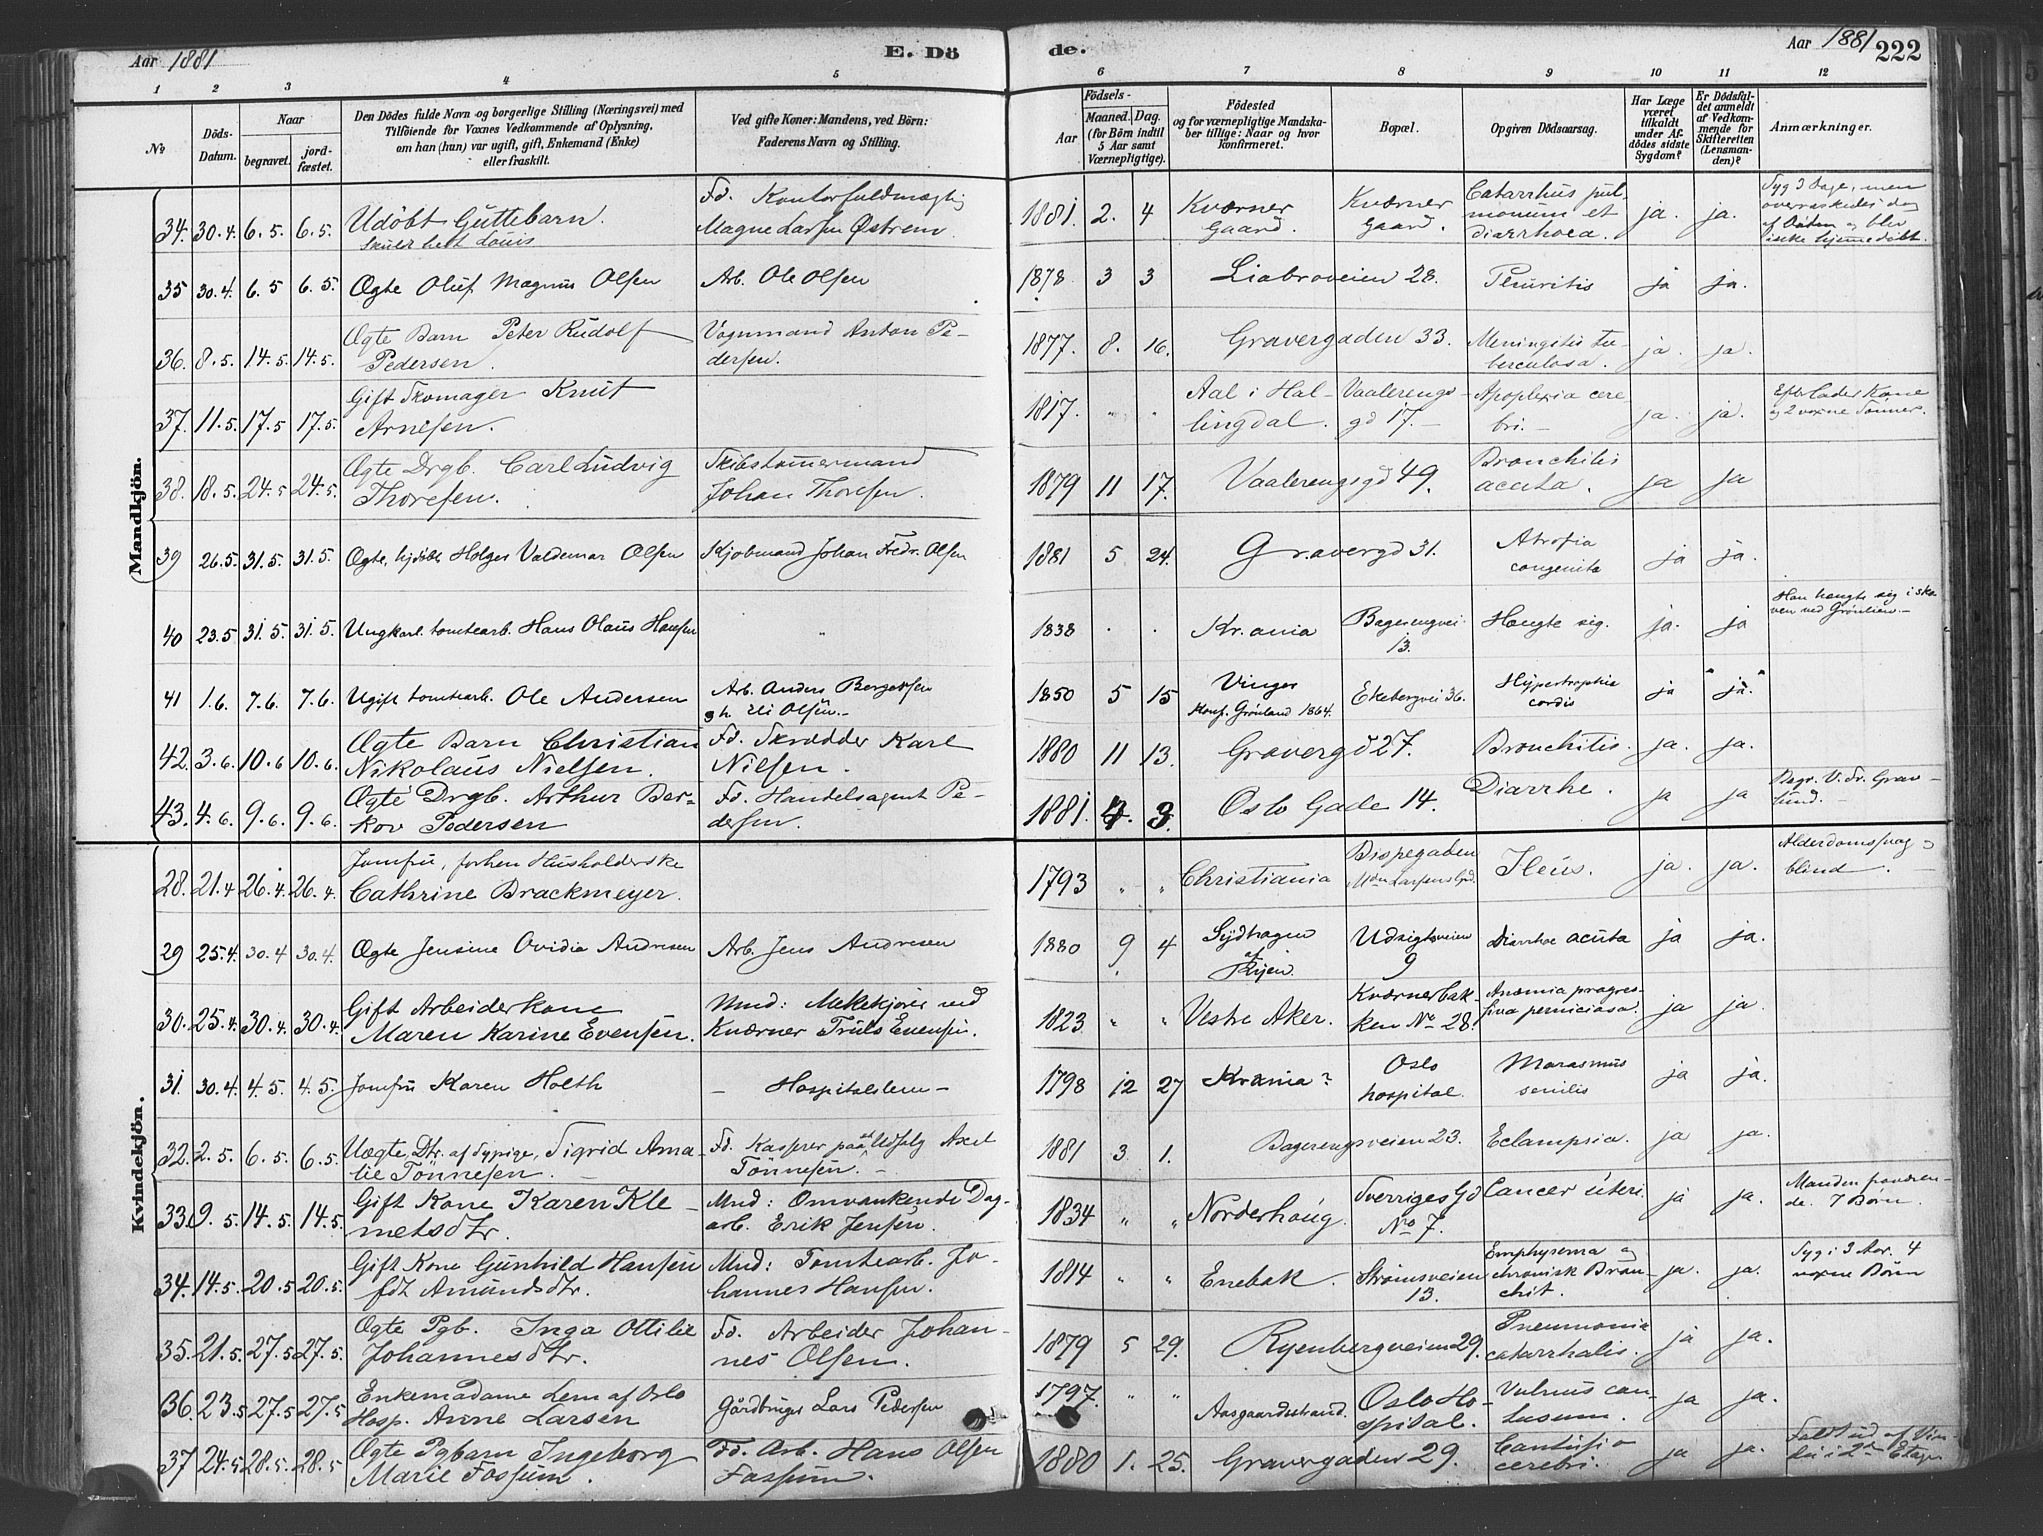 Aar 1881
E. Dö
de.
Aar 1881
222
1 2 3 4 5 6 7 8 9 10 11 12
No
Döds-Datum.
Naar
begravet.
jordfæstet.
Den Dödes fulde Navn og borgerlige Stilling (Næringsvei) med
Tilföiende for Voxnes Vedkommende af Oplysning,
om han (hun) var ugift, gift, Enkemand (Enke)
eller fraskilt.
Ved gifte Koner: Mandens, ved Börn:
Faderens Navn og Stilling.
Födsels-
Aar
Maaned. Dag.
(for Börn indtil
5 Aar samt
Værnepligtige).
Födested
og for værnepligtige Mandska-
ber tillige: Naar og hvor
konfirmeret.
Bopæl.
Opgiven Dödsaarsag.
Har Læge
været
tilkaldt
under Af-
dödes sidste
Sygdom?
Er Dödsfal-
det anmeldt
af Vedkom-
mende for
Skifteretten
(Lensman-
den)?
Anmærkninger.
Mandkjön.
34. 30.4. 6.5. 6.5. Udöbt Guttebarn. Fd. Kontorfuldmægtig 1881 2. 4 Kværner Kværner Catarrhus pul- ja. ja. Syg 3 Dage, men
skulde hett Louis Magne Larsen Østrem. Gaard. Gaard. monum et overraskedes dog
diarrhoea. af Døden og blev
ikke hjemmedöbt.
35 30.4. 6.5 6.5. Ægte Oluf Magnus Olsen Arb. Ole Olsen 1878 3 3 Liabroveien 28. Pleuritis ja ja.
36. 8.5. 14.5 14.5. Ægte Barn Peter Rudolf Vognmand Anton Pe- 1877. 8. 16. Gravergaden 33. Meningitis tu- ja. ja.
Pedersen. dersen. berculosa.
37. 11.5. 17.5 17.5. Gift Skomager Knut 1817. " " Aal i Hal- Vaalerengs- Apoplexia cere ja. ja. Efterlader Kone
Arnesen. lingdal. gd 17. bri. og 2 voxne Sønner.
38. 18.5. 24.5 24.5. Ægte Drgb. Carl Ludvig Skibstømermand 1879 11 17. Vaalerengsgd 49. Bronchitis ja ja
Thoresen. Johan Thoresen. acuta.
39 26.5. 31.5. 31.5. Ægte, hjdöbt Holger Valdemar Olsen Kjøbmand Johan Fredr. Olsen 1881 5 24. Gravergd 31. Atrofia ja ja.
congenita
40 23.5 31.5. 31.5. Ungkarl tomtearb. Hans Olaus Hansen " 1838 . . Kr.ania Bagerengvei Hængte sig. ja. ja Han hængte sig i sko
13. ven ved Grønlien.
41 1.6. 7.6. 7.6. Ugift tomtearb. Ole Andersen Arb. Anders Bergersen 1850 5 15 Vinger Ekebergvei 36. Hypertrophia ja "ja."
gh. Eli Olsen. Konf. Grönland 1864. cordis
42. 3.6. 10.6 10.6. Ægte Barn Christian Fd. Skrædder Karl 1880 11 13. Gravergd 27. Bronchitis. ja. ja.
Nikolaus Nielsen. Nielsen.
43. 4.6. 9.6. 9.6. Ægte Drgb. Arthur Ber- Fd. Handelsagent Pe- 1881. 4. 3. Oslo Gade 14. Diarrhe. ja ja Begr. V. Fr. Grav-
kov Pedersen dersen. lund.
Kvindekjön.
28. 21.4 26.4. 26.4. Jomfru, forhen Husholderske 1793 " " Christiania Bispegaden Ileus. ja. ja. Alderdomssvag og
Cathrine Brackmeyer. Mdm Larsens Gd. blind.
29 25.4. 30.4 30.4. Ægte Jensine Ovidia Andresen Arb. Jens Andresen 1880 9 4 Sydhagen Udsigtsveien Diarrhoe acuta ja ja.
af 9
Ryen.
30. 25.4. 30.4. 30.4. Gift Arbeiderkone Mnd: Melkekjører ved 1823 " " Vestre Aker. Kværnerbak- Anæmia progres- ja ja.
Maren Karine Evensen. Kværner Truls Evensen. ken No 28. siva perniciosa.
31. 30.4. 4.5 4.5. Jomfru Karen Holth - Hospitalslem - 1798 12 27 Krania? Oslo Marasmus ja ja.
hospital. senilis
32. 2.5. 6.5. 6.5. Uægte Dtr. af Pige, Sigrid Ama- Fd. Kasserer paa Udsalg Axel 1881 3 1. Bagerengsveien 23. Eclampsia. ja ja.
lie Tönnesen. Tönnesen.
33. 9.5. 14.5. 14.5. Gift Kone Karen Kle- Mnd: Omvankende Dag- 1834 " " Norderhoug. Sverriges Gd Cancer uteri. ja ja. Manden fraværen-
metsdtr. arb. Erik Jensen. No 7. de. 7 Børn.
34. 14.5. 20.5 20.5. Gift Kone Gunhild Hansen Mnd: Tomtearb. Jo- 1814 " " Enebak. Strømsveien Emphysema og ja. ja. Syg i 3 Aar. 4
fdt Amundsdtr. hannes Hansen. 13. chronisk Bron- voxne Børn
chit.
35. 21.5. 27.5 27.5. Ægte Pgb. Inga Ottilie Fd. Arbeider Johan- 1879 5 29. Ryenbergveien 29. Pneumonia ja ja.
Johannesdtr. nes Olsen. catarrhalis.
36. 23.5 27.5 27.5 Enkemadame Lem af Oslo Gårdbruger Lars Pedersen 1797. " " Aasgaardsstrand. Oslo Ho- Vulnus con- ja ja.
Hosp. Anne Larsen spital. tusum.
37 24.5 28.5. 28.5 Ægte Pgbarn Ingeborg Fd. Arb. Hans Olsen 1880 1. 25. Gravergaden 29. Contusio ja ja. Faldt ud af Vin-
Marie Fossum. Fossum. cerebri. duet i 2den Etage